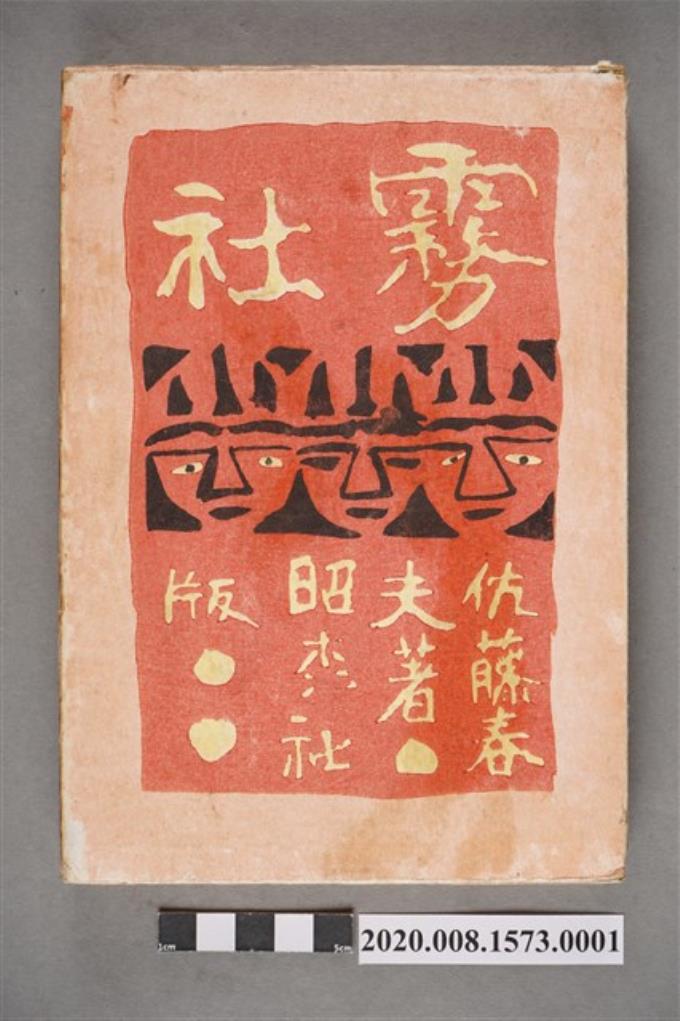 霧社
佐藤春
夫著
昭森社
版
1cm 5cm
2020.008.1573.0001